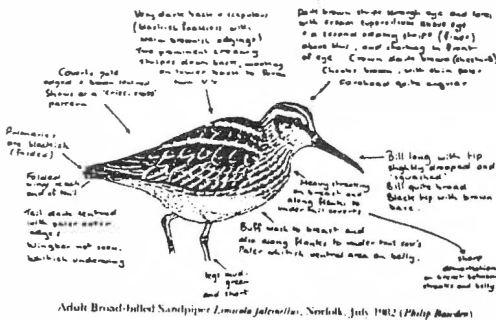 Very dark back & scapulars
(blackish feathers with
warm brownish edgings)
Two prominent creamy
stripes down back, meeting
on lower back to form
twin V's
Dark brown stripe through eye and lores,
with cream supercilium above eye
& a second creamy stripe (finer)
above this, and starting in front
of eye. Crown dark brown (chestnut)
Cheeks brown, with chin paler
Forehead quite angular
Coverts pale
edged & brown centred
Shows as a 'criss-cross'
pattern
Primaries
are blackish
(folded)
Folded
wings reach
end of tail
Tail dark centred
with paler outer
edges
Wingbar not seen,
whitish underwing
Bill long with tip
slightly drooped and
'squashed'
Bill quite broad
Black tip with brown
base.
Heavy streaking
on breast and
along flanks to
under tail coverts
Buff wash to breast and
also along flanks to under tail cov's
Paler whitish ventral area on belly.
legs mud-
green
and short
sharp
demarcation
on breast between
streaks and belly
Adult Broad-billed Sandpiper Limicola falcinellus, Norfolk, July 1982 (Philip Bawden)